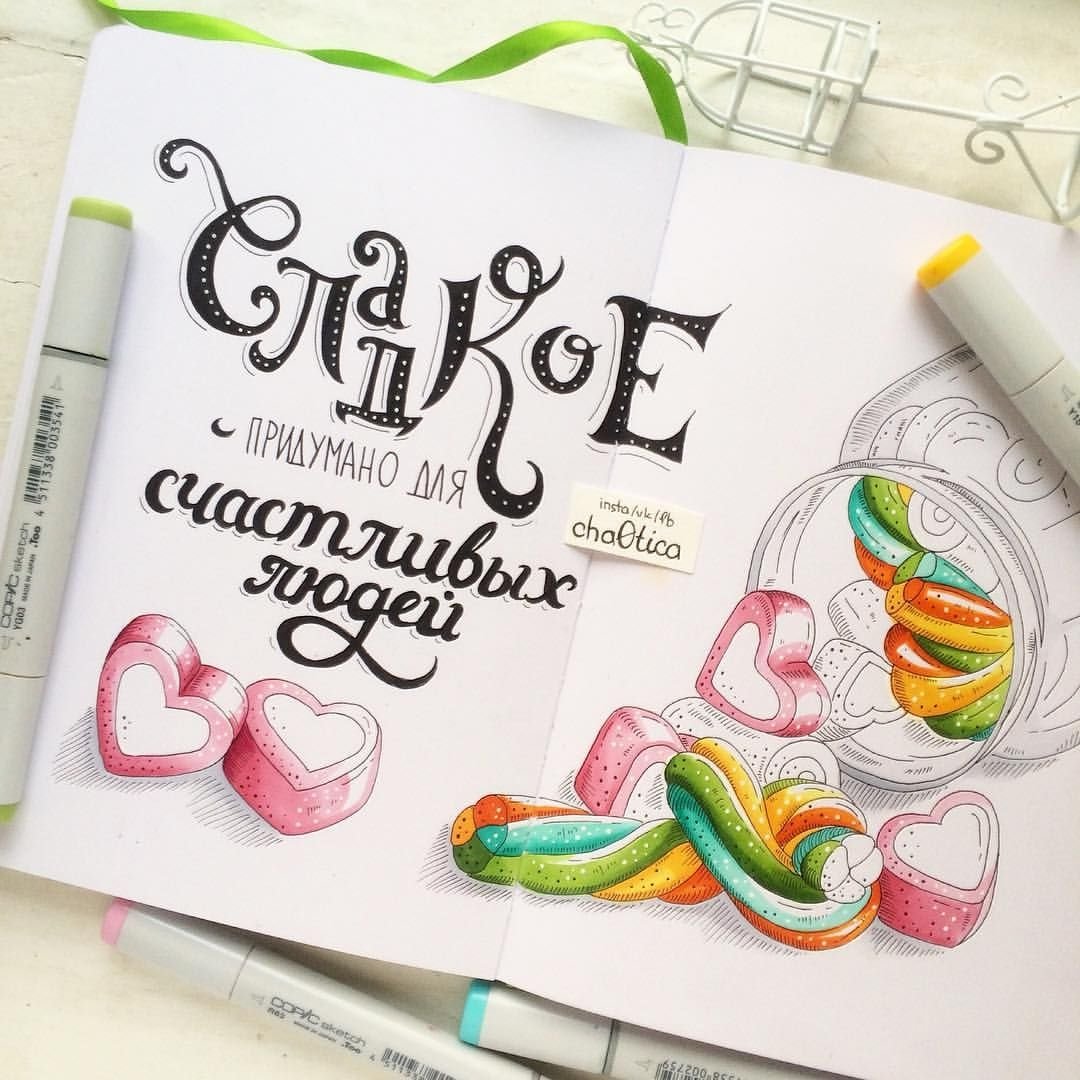 Сладкое
придумано для
счастливых
людей
insta/vk/fb
cha0tica
COPIC sketch
YG03 MADE IN JAPAN .Too
4 511338 003541
COPIC sketch
MADE IN JAPAN .Too